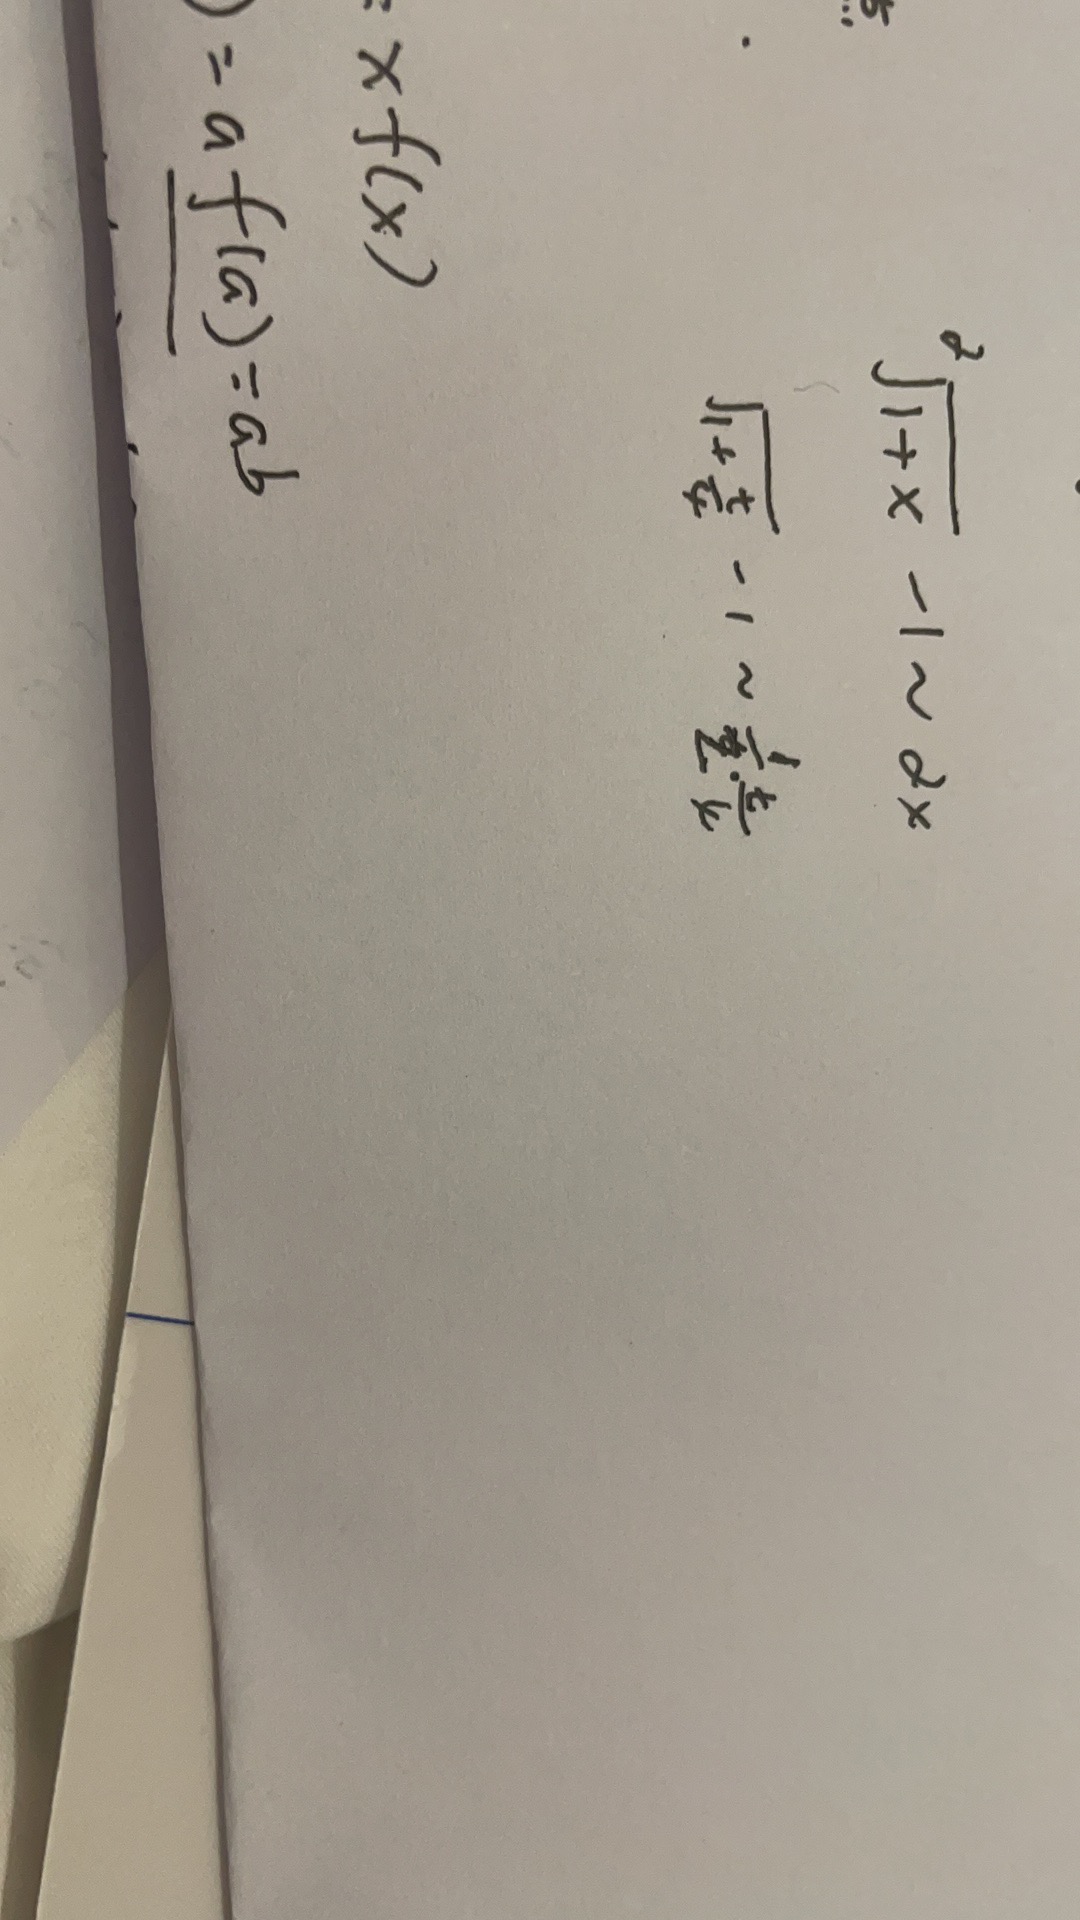 ²√1+x -1 ~ 2x
√1+t/4 - 1 ~ 1/2 · t/4
= x f(x)
) = a f(a) = ab